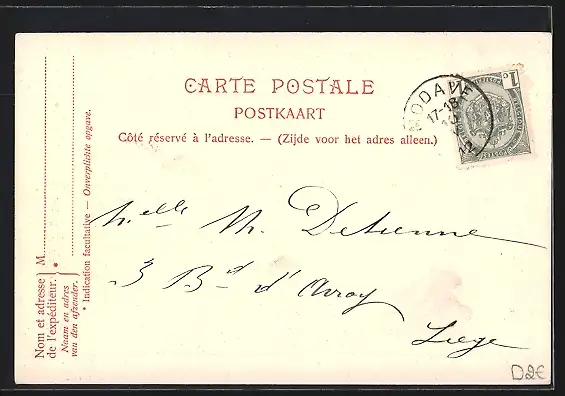 CARTE POSTALE
POSTKAART
Côté réservé à l'adresse. — (Zijde voor het adres alleen.)
MODAVE
17-18
12
1c
Melle M. Detienne
3 Bd d'Avroy
Liege
Nom et adresse de l'expéditeur. M.
Naam en adres van den afzender.
* Indication facultative — Onverplichte opgave.
D2€